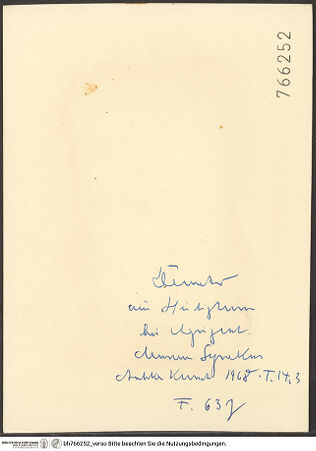 766252
Demeter
aus Heiligtum
bei Agrigent.
Museum Syrakus
Antike Kunst 1968. T. 14,3
F. 637
bh766252_verso Bitte beachten Sie die Nutzungsbedingungen.